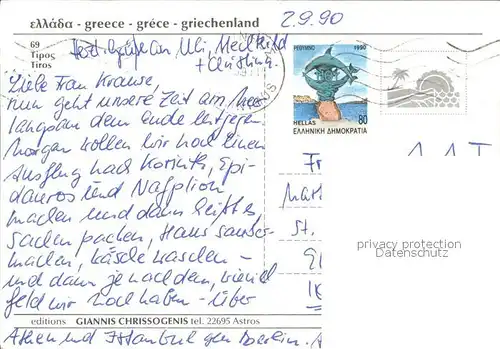 ελλάδα - greece - grèce - griechenland
2.9.90
69
Τίρος
Tiros
Herzl. Grüße an Uli, Mechthild
+ Christina
Liebe Frau Krause,
nun geht unsere Zeit am Meer
langsam dem Ende entgegen.
Morgen wollen wir noch einen
Ausflug nach Korinth, Epi-
dauros und Nafplion
machen und dann heißt es,
Sachen packen, Haus sauber-
machen, Wäsche waschen -
und dann je nachdem, wieviel
Geld wir noch haben - über
Athen und Istanbul gen Berlin.
ΡΕΘΥΜΝΟ 1990
HELLAS 80
ΕΛΛΗΝΙΚΗ ΔΗΜΟΚΡΑΤΙΑ
1 1 T
Fr
St.
privacy protection
Datenschutz
editions GIANNIS CHRISSOGENIS tel. 22695 Astros